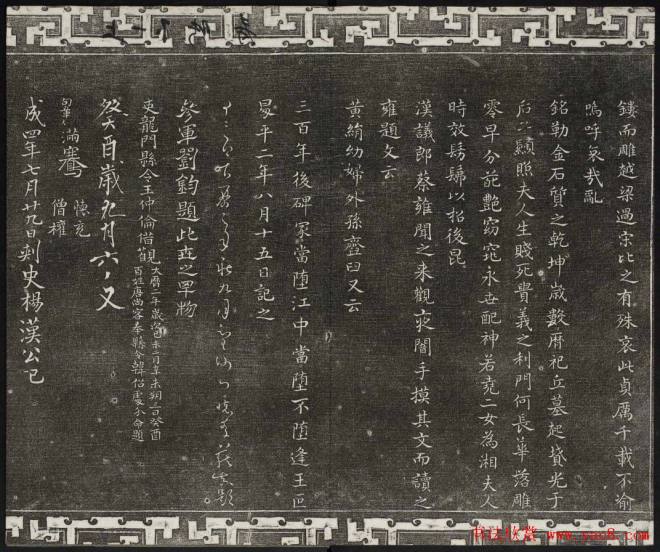 鏤而雕越梁過宋比之有殊哀此貞厲千載不渝
嗚呼哀哉亂
銘勒金石質之乾坤歲數厤祀丘墓起墳光于
后土顯照夫人生賤死貴義之利門何長華落雕
零早分葩艷窈窕永世配神若堯二女為湘夫人
時放髣髴以招後昆
漢議郎蔡雍聞之来觀夜闇手摸其文而讀之
雍題文云
黃絹幼婦外孫齏臼又云
三百年後碑冢當墮江中當墮不墮逢王叵
昇平二年八月十五日記之
參軍劉鈞題此世之罕物
吏龍門縣令王仲倫借觀
大曆二年歲
百姓唐尚客奉縣令韓
癸酉歲九月六日又
滿騫
懷充
僧權
成四年七月廿九日刺史楊漢公記
书法欣赏 www.yac8.com